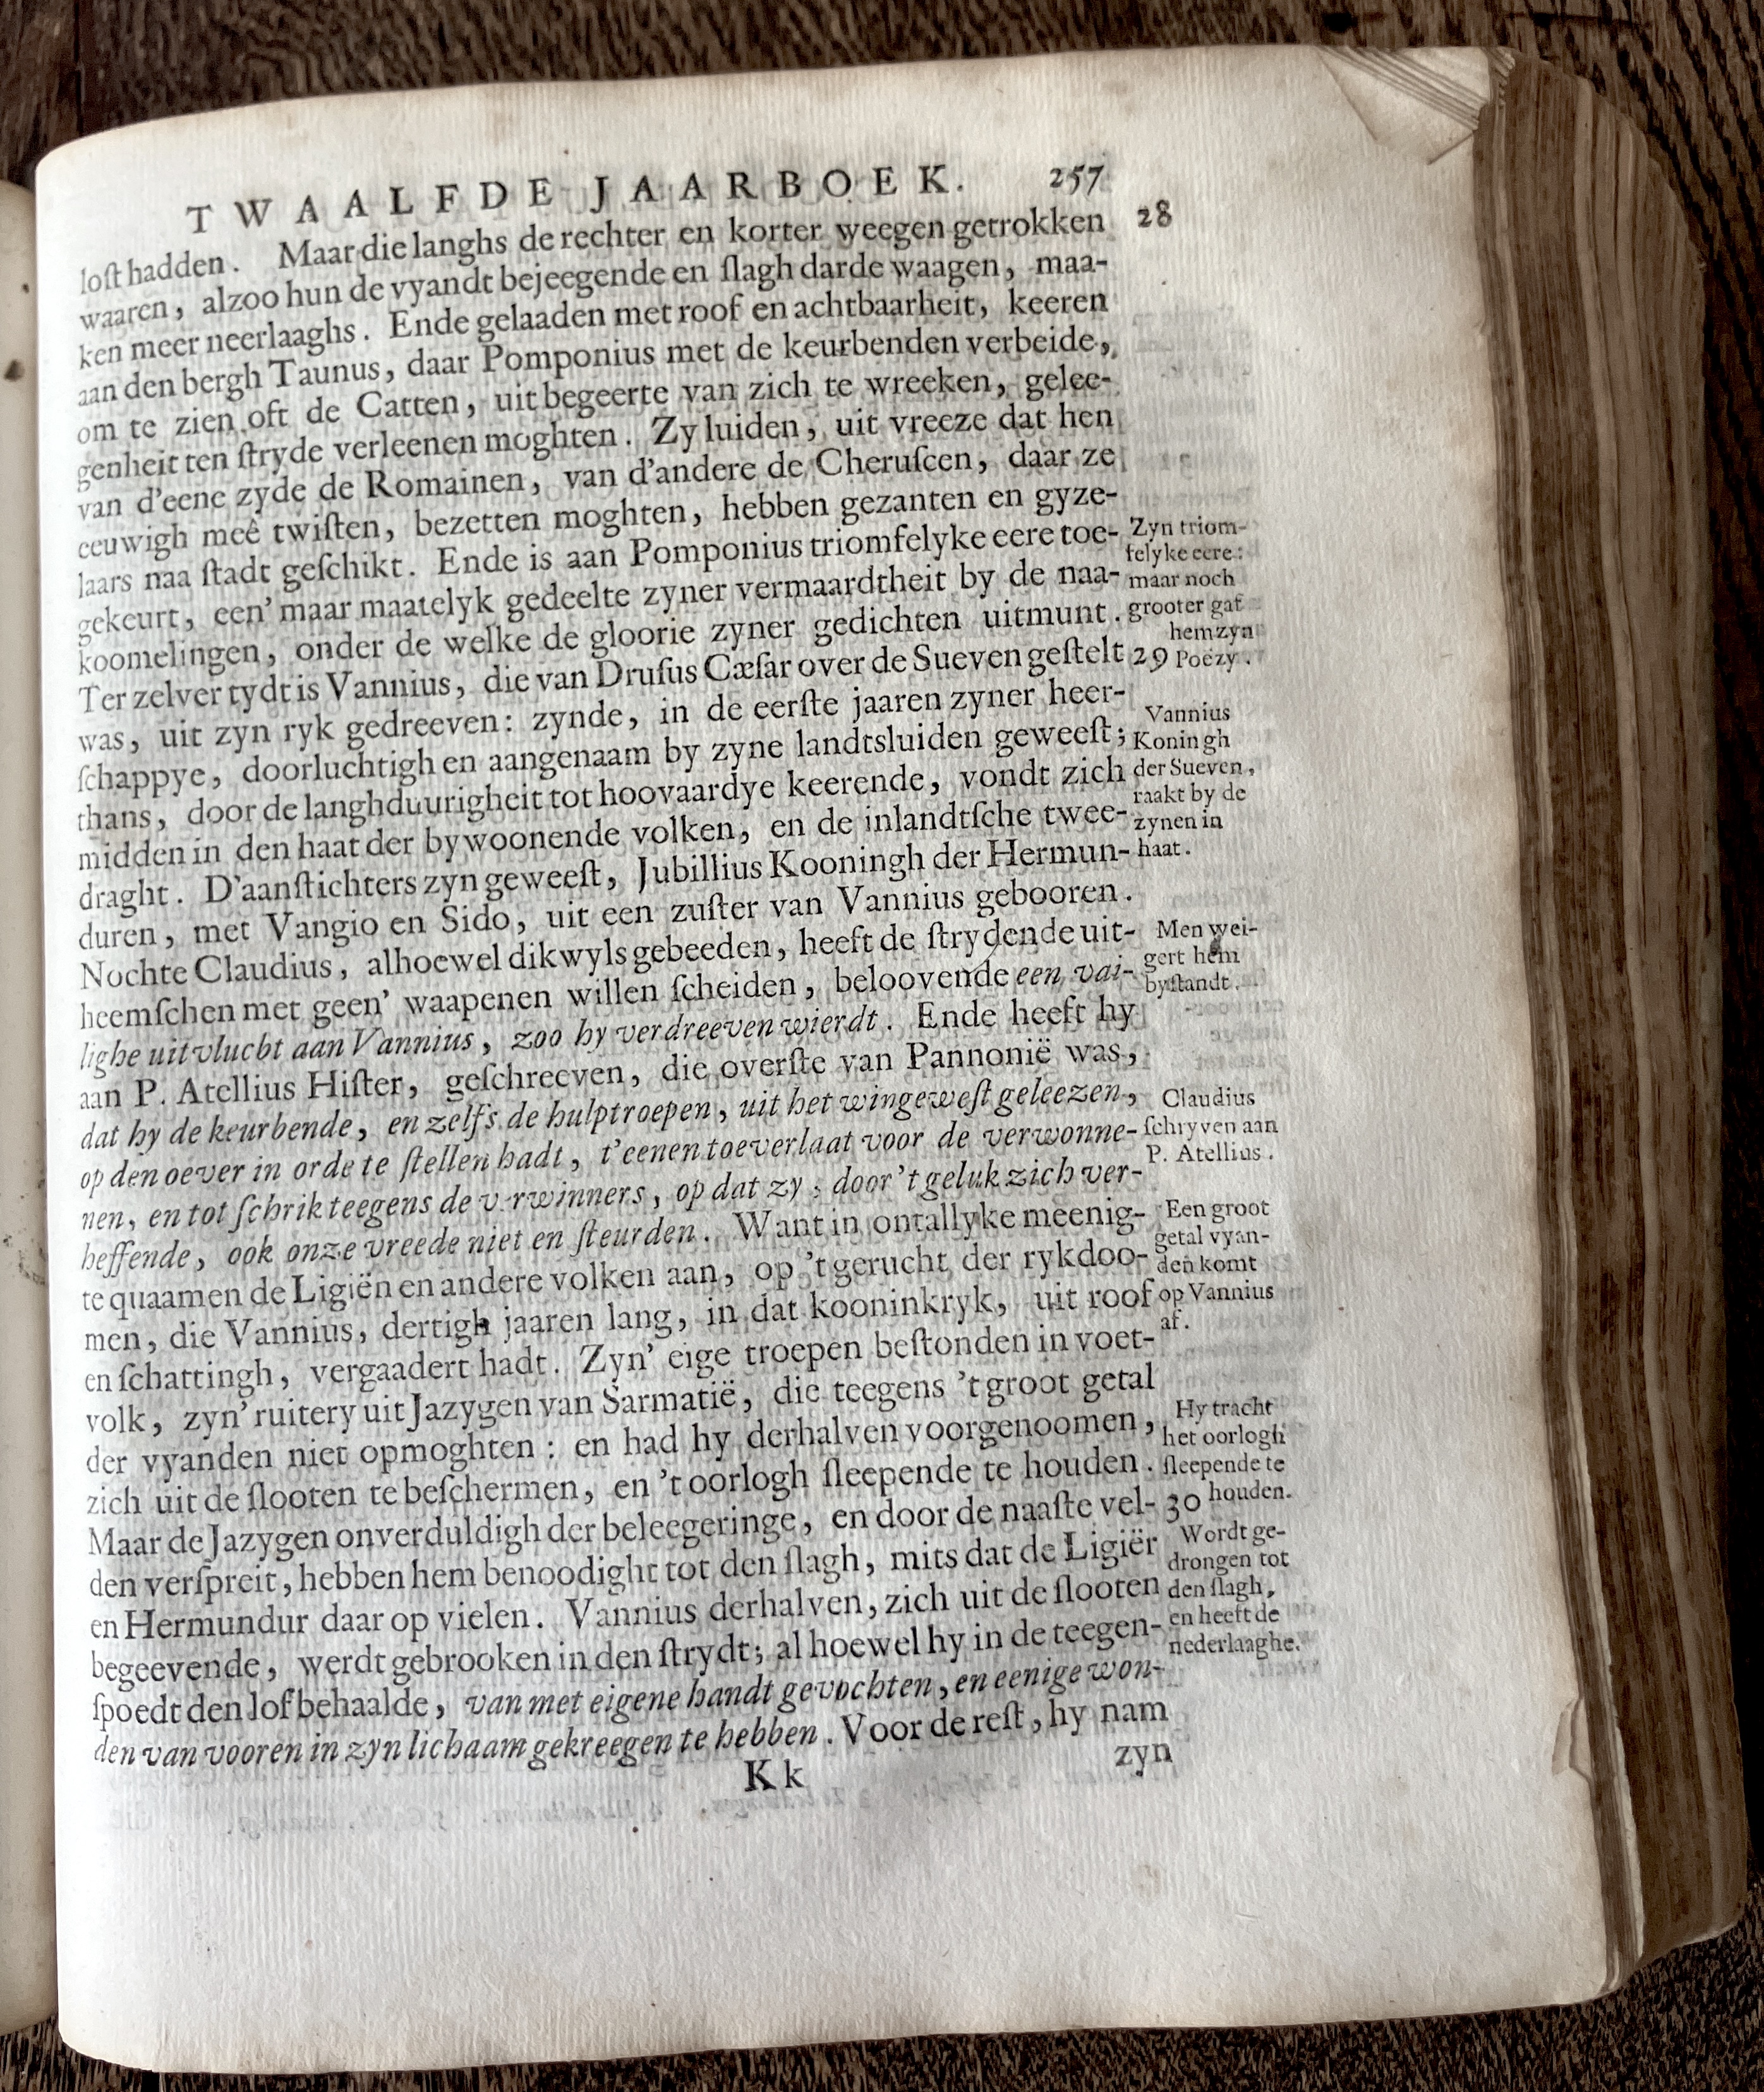 TWAALFDE JAARBOEK. 257
loſt hadden. Maar die langhs de rechter en korter weegen getrokken 28
waaren, alzoo hun de vyandt bejeegende en ſlagh darde waagen, maa-
ken meer neerlaaghs. Ende gelaaden met roof en achtbaarheit, keeren
aan den bergh Taunus, daar Pomponius met de keurbenden verbeide,
om te zien oft de Catten, uit begeerte van zich te wreeken, gelee-
genheit ten ſtryde verleenen moghten. Zy luiden, uit vreeze dat hen
van d'eene zyde de Romainen, van d'andere de Cheruſcen, daar ze
eeuwigh meê twiſten, bezetten moghten, hebben gezanten en gyze-
laars naa ſtadt geſchikt. Ende is aan Pomponius triomfelyke eere toe-
gekeurt, een' maar maatelyk gedeelte zyner vermaardtheit by de naa-
koomelingen, onder de welke de gloorie zyner gedichten uitmunt.
Zyn triom-
felyke eere:
maar noch
grooter gaf
hem zyn
Poëzy.
Ter zelver tydt is Vannius, die van Druſus Cæſar over de Sueven geſtelt 29
was, uit zyn ryk gedreeven: zynde, in de eerſte jaaren zyner heer-
ſchappye, doorluchtigh en aangenaam by zyne landtsluiden geweeſt;
thans, door de langhduurigheit tot hoovaardye keerende, vondt zich
midden in den haat der bywoonende volken, en de inlandtſche twee-
draght. D'aanſtichters zyn geweeſt, Jubillius Kooningh der Hermun-
duren, met Vangio en Sido, uit een zuſter van Vannius gebooren.
Vannius
Koningh
der Sueven,
raakt by de
zynen in
haat.
Nochte Claudius, alhoewel dikwyls gebeeden, heeft de ſtrydende uit-
heemſchen met geen' waapenen willen ſcheiden, beloovende een vai-
lighe uitvlucht aan Vannius, zoo hy verdreeven wierdt. Ende heeft hy
Men wei-
gert hem
byſtandt.
aan P. Atellius Hiſter, geſchreeven, die overſte van Pannonië was,
dat hy de keurbende, en zelfs de hulptroepen, uit het wingeweſt geleezen,
op den oever in orde te ſtellen hadt, t'eenen toeverlaat voor de verwonne-
nen, en tot ſchrik teegens de v rwinners, op dat zy, door 't geluk zich ver-
heffende, ook onze vreede niet en ſteurden. Want in ontallyke meenig-
Claudius
ſchryven aan
P. Atellius.
te quaamen de Ligiën en andere volken aan, op 't gerucht der rykdoo-
men, die Vannius, dertigh jaaren lang, in dat kooninkryk, uit roof
en ſchattingh, vergaadert hadt. Zyn' eige troepen beſtonden in voet-
Een groot
getal vyan-
den komt
op Vannius
af.
volk, zyn' ruitery uit Jazygen van Sarmatië, die teegens 't groot getal
der vyanden niet opmoghten: en had hy derhalven voorgenoomen,
zich uit de ſlooten te beſchermen, en 't oorlogh ſleepende te houden.
Hy tracht
het oorlogh
ſleepende te
houden.
Maar de Jazygen onverduldigh der beleegeringe, en door de naaſte vel- 30
den verſpreit, hebben hem benoodight tot den ſlagh, mits dat de Ligiër
en Hermundur daar op vielen. Vannius derhalven, zich uit de ſlooten
begeevende, werdt gebrooken in den ſtrydt; al hoewel hy in de teegen-
ſpoedt den lof behaalde, van met eigene handt gevochten, en eenige won-
den van vooren in zyn lichaam gekreegen te hebben. Voor de reſt, hy nam
Wordt ge-
drongen tot
den ſlagh,
en heeft de
nederlaaghe.
Kk
zyn